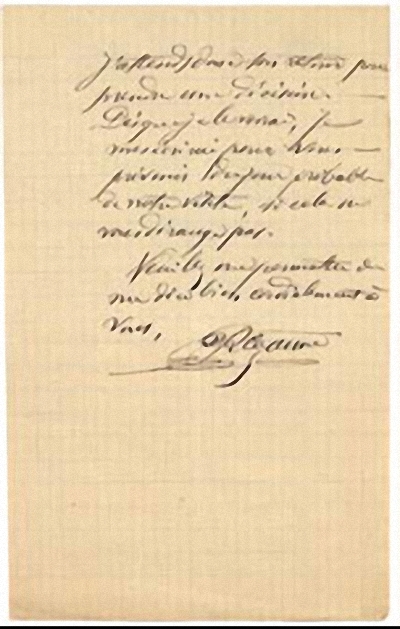 J'attends donc son retour pour
prendre une décision.
Dès que je le verrai, je
vous
préviens du jour probable
de notre visite, si cela ne
vous dérange pas.
Veuillez me permettre de
me dire bien cordialement à
vous,
P Cezanne